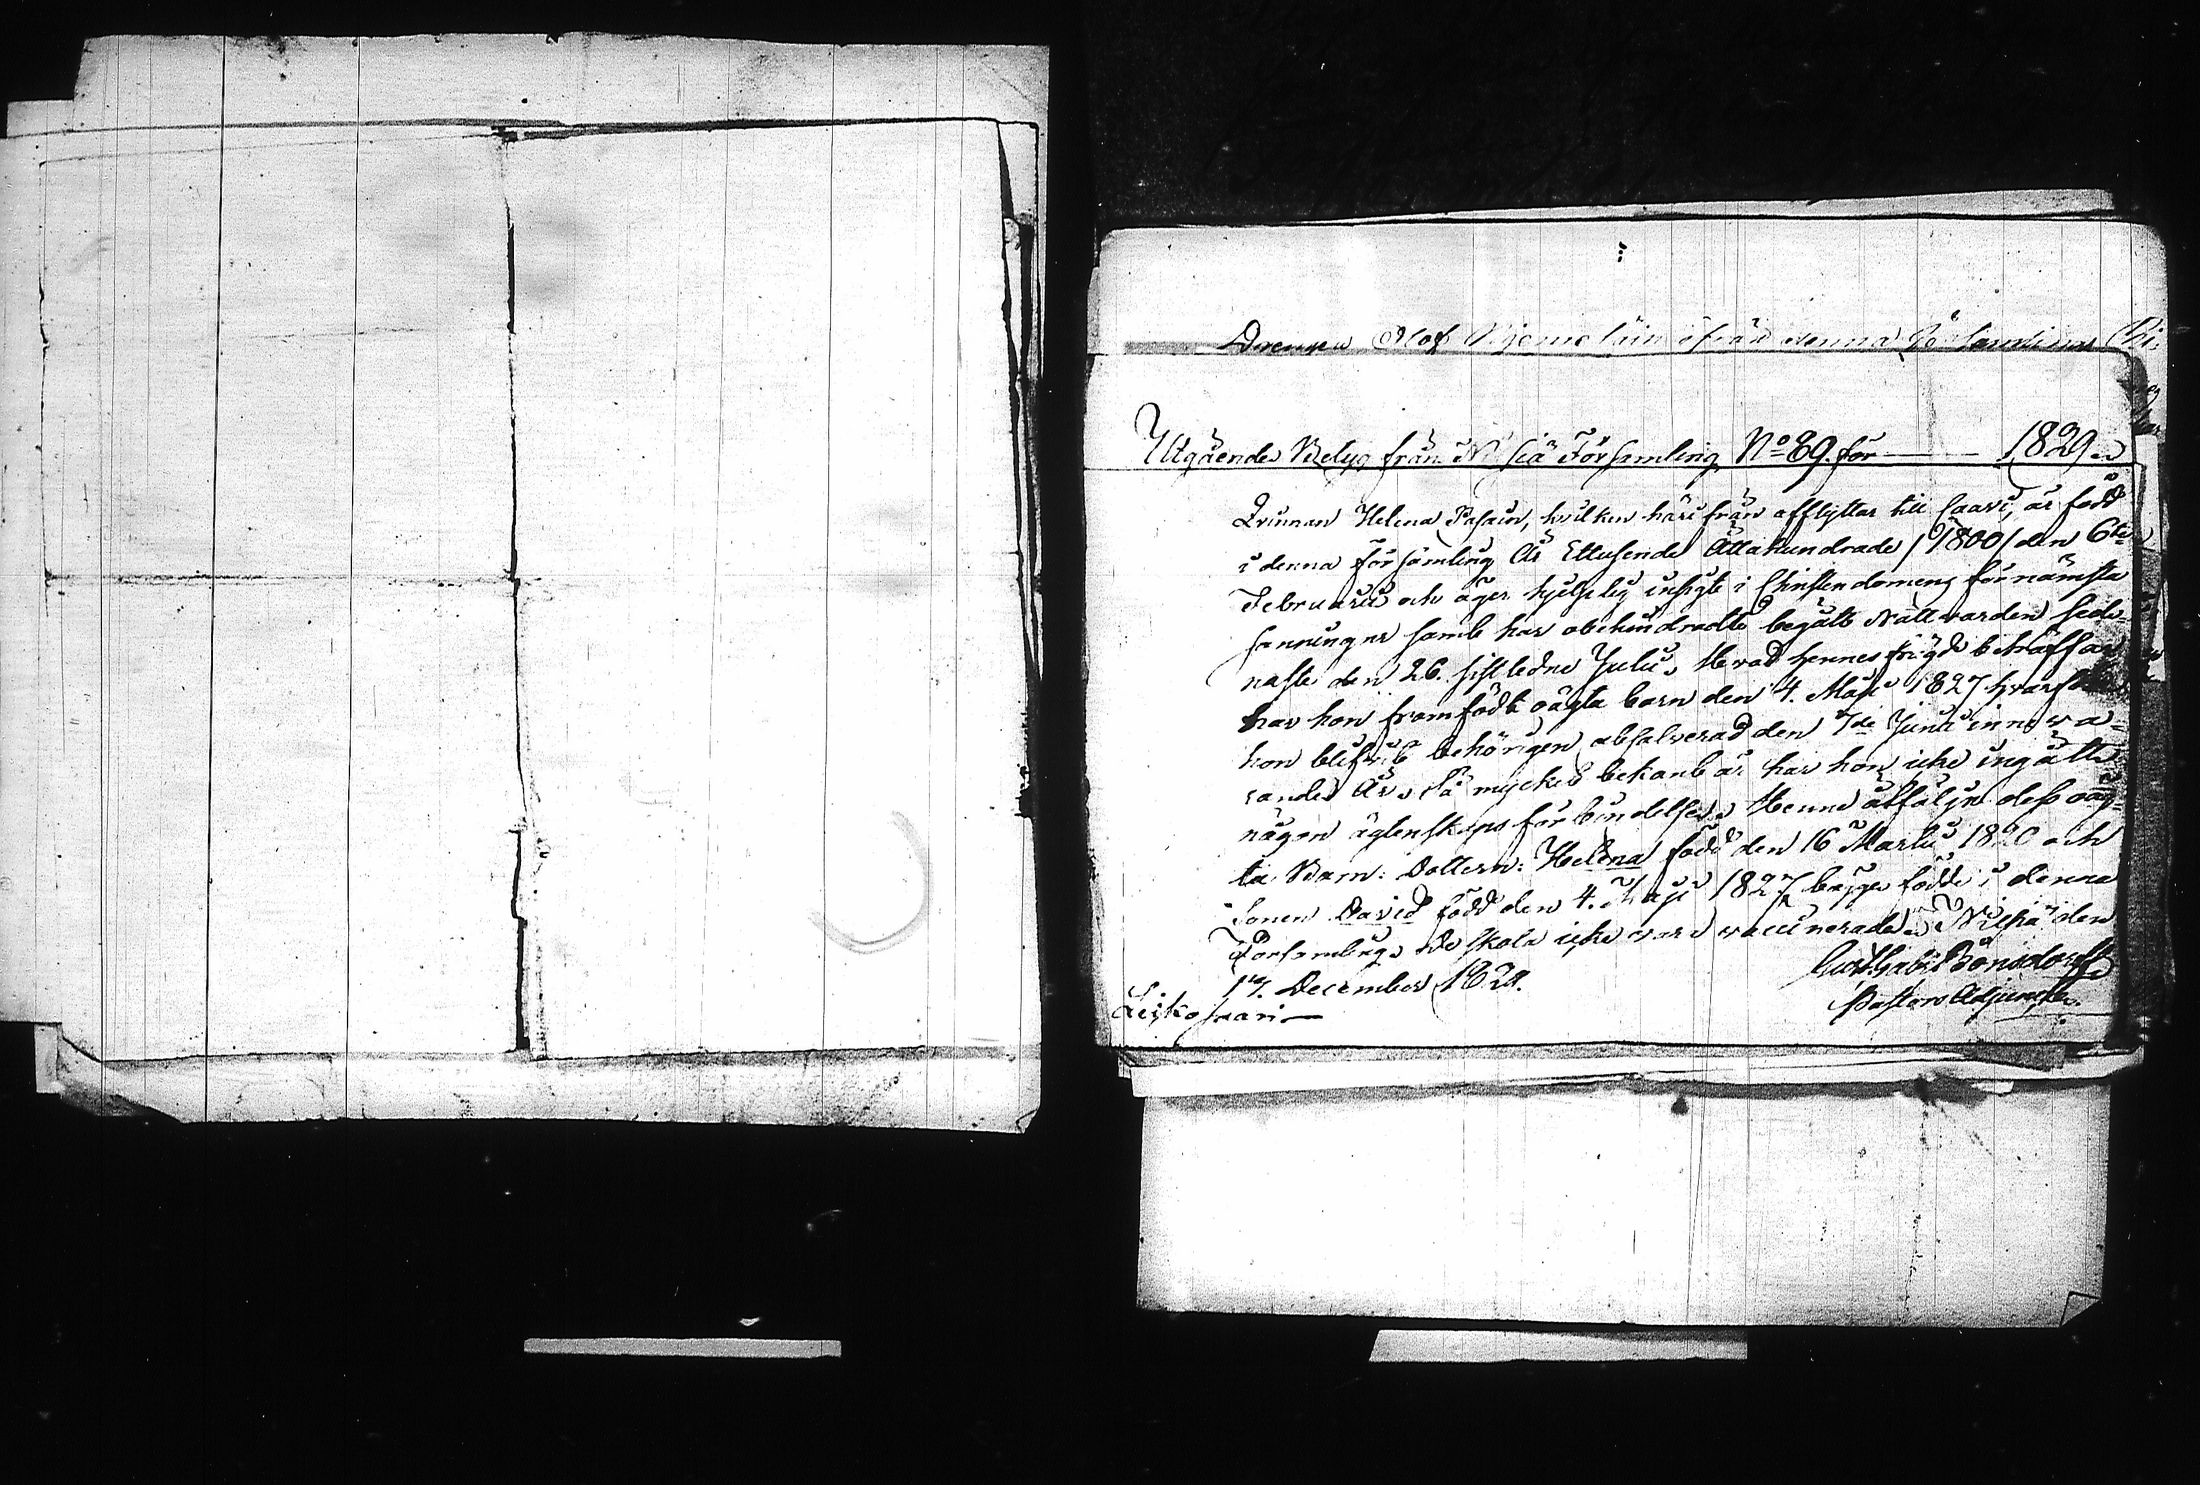 Drengen Olof ifrån denna Församling
Utgående Betyg från Nilsiä Församling No 89. för — 1829.
Qvinnan Helena, hvilken härifrån afflyttar till Saari, är född
i denna församling År Ettusende Åttahundrade /1800/ den 6te
Februarii och äger hjelplig insigt i Christendomens förnämsta
sanningar samt har obehindradt begått Nattvarden sed-
naste den 26. sistledne Julii. Hvad hennes frägd beträffar
har hon framfödt oägta barn den 4. Maji 1827 hvarföre
hon blifvit behörigen absolverad den 7de Junii innewa-
rande År. Så mycket bekant är har hon icke ingått
någon ägtenskaps förbindelse. Henne åtfölja dess oäg-
ta Barn: Dottern: Helena född den 16 Martii 1820 och
Sonen David född den 4. Maji 1827 bägge födde i denna
Församling. De skola icke vara vaccinerade. Nilsiä den
17. December 1829.
Gust. Gab. Bonsdorff
Pastors Adjunct.